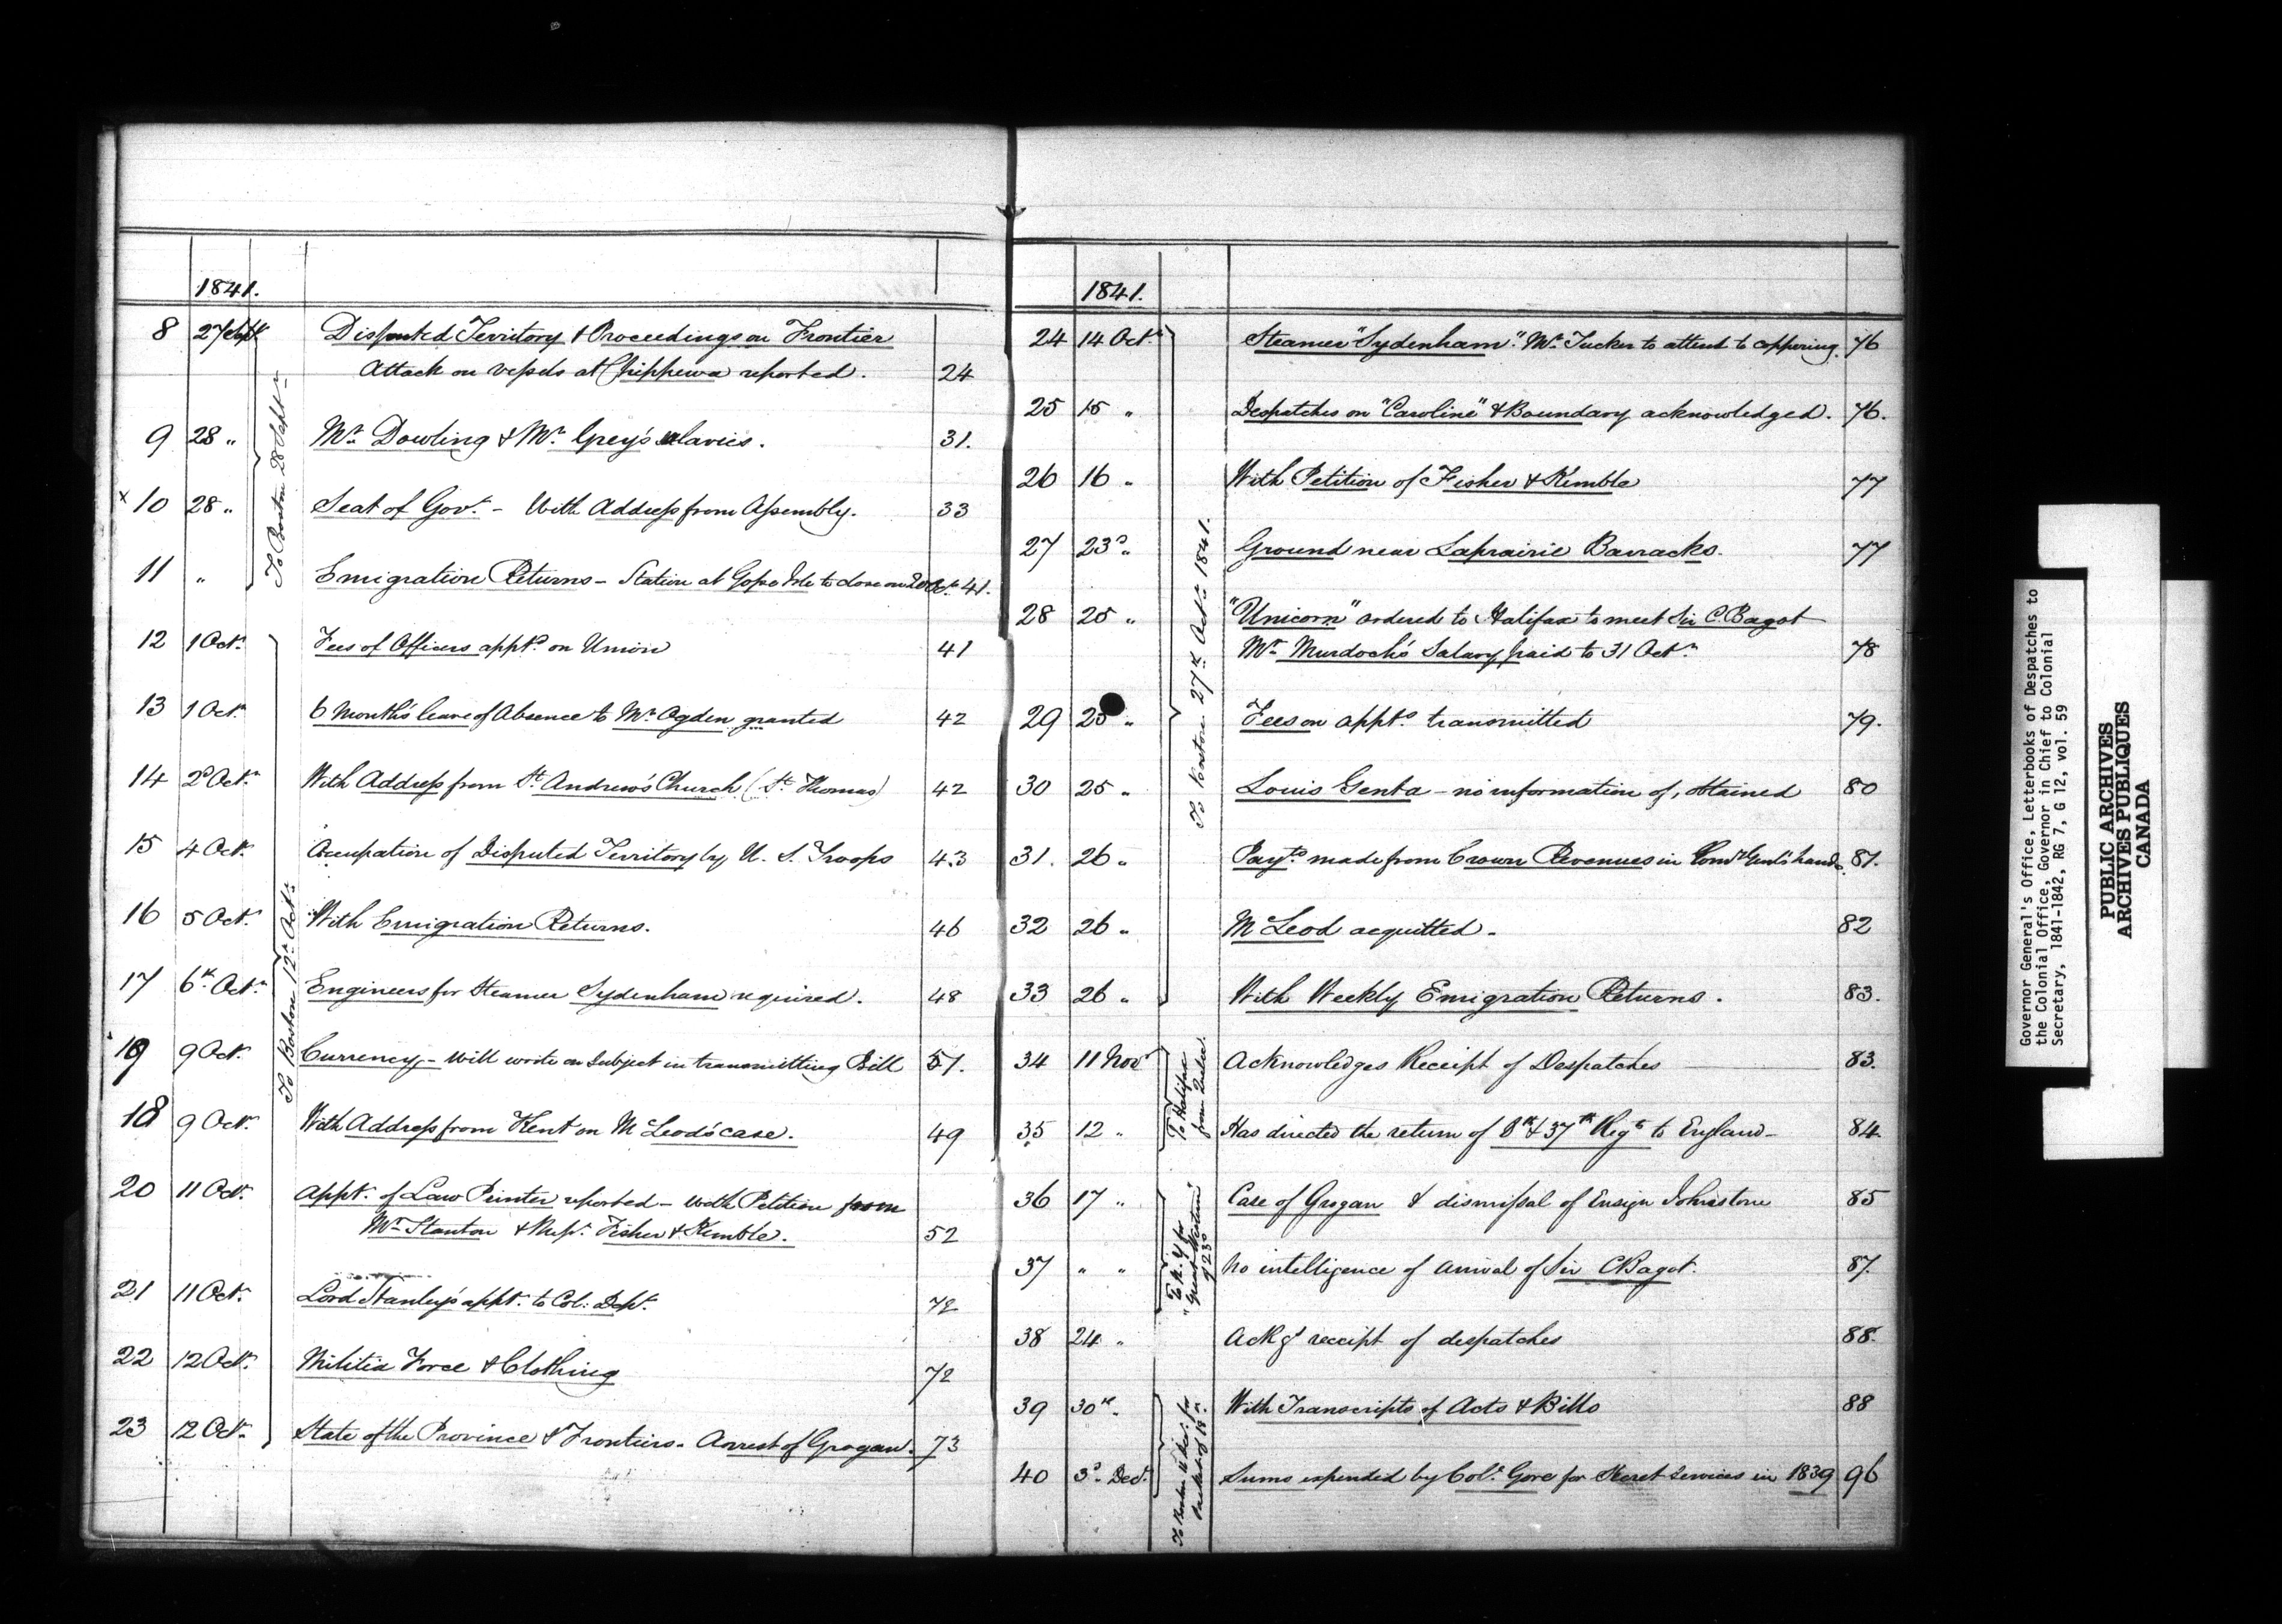 1841.
8 27 Sept. Disputed Territory & Proceedings on Frontier
Attack on vessels at Chippewa reported. 24
9 28 " Mr. Dowling & Mr. Grey's salaries. 31.
x 10 28 " Seat of Govt. - With Address from Assembly. 33
11 " Emigration Returns - Station at Gosse Isle to close on 20 Oct. 41.
To Boston 28 Sept.
12 1 Oct. Fees of Officers apptd. on Union 41
13 1 Oct. 6 Months leave of Absence to Mr. Ogden granted 42
14 2d Oct. With Address from St. Andrew's Church (St. Thomas) 42
15 4 Oct. Occupation of Disputed Territory by U. S. Troops 43
16 5 Oct. With Emigration Returns. 46
17 6th Oct. Engineers for Steamer Sydenham required. 48
19 9 Oct. Currency - Will write on Subject in transmitting Bill 51.
18 9 Oct. With Address from Kent on McLeod's case. 49
20 11 Oct. Appt. of Law Printer reported - with Petition from
Mr. Stanton & Messrs. Fisher & Kimble. 52
21 11 Oct. Lord Stanley's appt. to Col: Dept. 72
22 12 Oct. Militia Force & Clothing 72
23 12 Oct. State of the Province & Frontiers. Arrest of Grogan. 73
To Boston 12th Oct.
1841.
24 14 Oct. Steamer "Sydenham". Mr. Tucker to attend to coppering. 76
25 15 " Despatches on "Caroline" & Boundary acknowledged. 76.
26 16 " With Petition of Fisher & Kimble 77
27 23d " Ground near Laprairie Barracks. 77
28 25 " "Unicorn" ordered to Halifax to meet Sir C. Bagot
Mr. Murdoch's Salary paid to 31 Oct. 78
29 25 " Fees on appts. transmitted 79.
30 25 " Louis Genta - no information of, obtained 80
31. 26 " Payts. made from Crown Revenues in hands 81.
32 26 " McLeod acquitted. 82
33 26 " With Weekly Emigration Returns. 83.
To Boston 27th Oct. 1841.
34 11 Nov. Acknowledges Receipt of Despatches 83.
35 12 " Has directed the return of 8th & 37th Regts to England - 84
To Halifax
from Quebec.
36 17 " Case of Grogan & dismissal of Ensign Johnstone 85
37 " " No intelligence of arrival of Sir C Bagot. 87.
To N. Y. for
"Great Western"
of 23d
38 24 " Ackgs receipt of despatches 88.
39 30th " With Transcripts of Acts & Bills 88
40 3d. Dec. Sums expended by Col. Gore for Secret Services in 1839 96
Governor General's Office, Letterbooks of Despatches to
the Colonial Office, Governor in Chief to Colonial
Secretary, 1841-1842, RG 7, G 12, vol. 59
PUBLIC ARCHIVES
ARCHIVES PUBLIQUES
CANADA